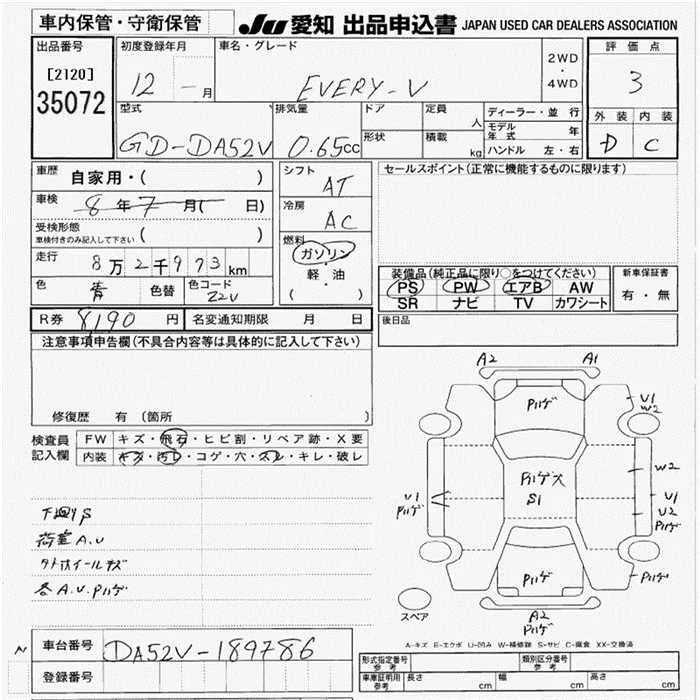 車内保管・守衛保管
JU 愛知 出品申込書 JAPAN USED CAR DEALERS ASSOCIATION
出品番号
[2120]
35072
初度登録年月
12 - 月
車名・グレード
EVERY-V
2WD
・
4WD
評価点
3
外装 内装
D C
型式
GD-DA52V
排気量
0.65cc
ドア
形状
定員
人
積載
kg
ディーラー・並 行
モデル年式 年
ハンドル 左・右
車歴
自家用・( )
車検
8 年 7 月( 日)
受検形態
車検付きのみ記入して下さい ( )
走行
8万2千973km
色
青
色替
色コード
Z2V
シフト
AT
冷房
AC
燃料
ガソリン
・
軽・油
( )
セールスポイント(正常に機能するものに限ります)
装備品(純正品に限り○をつけてください)
PS PW エアB AW
SR ナビ TV カワシート
新車保証書
有・無
R券 8190 円
名変通知期限 月 日
後日品
注意事項申告欄(不具合内容等は具体的に記入して下さい)
修復歴 有 (箇所
検査員
記入欄
FW キズ・飛石・ヒビ割・リペア跡・X要
内装 キズ・汚レ・コゲ・穴・スレ・キレ・破レ
下廻りS
荷室A.U
タテホイールキズ
各A.U.Pハゲ
A2 A1
Pハゲ
U1
W2
Pハゲ大
S1
W2
U1
Pハゲ
U1
U2
Pハゲ
Pハゲ
Pハゲ
スペア
A2
Pハゲ
A-キズ E-エクボ U-凹み W-補修跡 S-サビ C-腐食 XX-交換済
N
車台番号
DA52V-189786
登録番号
形式指定番号
参考
類別区分番号
参考
車庫証明用
参考
長さ cm
幅 cm
高さ cm